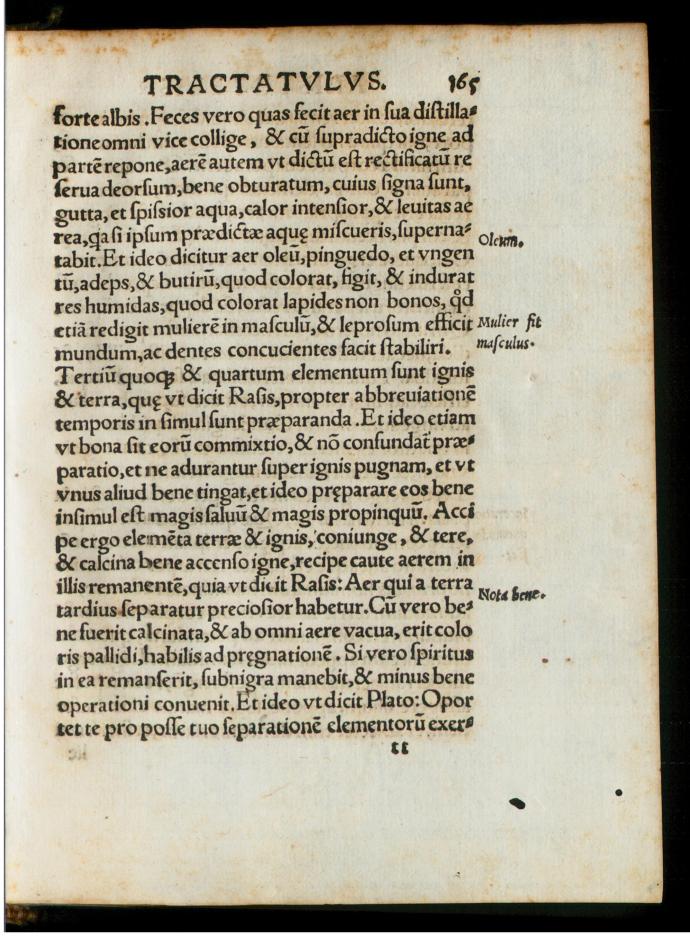 TRACTATVLVS. 165
forte albis .Feces vero quas fecit aer in sua distilla⸗
tione omni vice collige, & cū supradicto igne ad
partē repone,aerē autem vt dictū est rectificatū re
serua deorsum,bene obturatum, cuius signa sunt,
gutta, et spissior aqua,calor intensior,& leuitas ae
rea,qa si ipsum prædictæ aquę miscueris,superna⸗
tabit.Et ideo dicitur aer oleū,pinguedo, et vngen
tū,adeps,& butirū,quod colorat, figit, & indurat
res humidas,quod colorat lapides non bonos, qd
etiā redigit mulierē in masculū,& leprosum efficit
mundum,ac dentes concucientes facit stabiliri.
Tertiū quoqꝫ & quartum elementum sunt ignis
& terra,quę vt dicit Rasis,propter abbreuiationē
temporis in simul sunt præparanda .Et ideo etiam
vt bona sit eorū commixtio,& nō confundat̄ præ⸗
paratio,et ne adurantur super ignis pugnam, et vt
vnus aliud bene tingat,et ideo pręparare eos bene
insimul est magis saluū & magis propinquū. Acci
pe ergo elemēta terræ & ignis, coniunge, & tere,
& calcina bene accenso igne,recipe caute aerem in
illis remanentē,quia vt dicit Rasis: Aer qui a terra
tardius separatur preciosior habetur.Cū vero be⸗
ne fuerit calcinata,& ab omni aere vacua, erit colo
ris pallidi,habilis ad pręgnationē. Si vero spiritus
in ea remanserit, subnigra manebit,& minus bene
operationi conuenit.Et ideo vt dicit Plato: Opor
tet te pro posse tuo separationē elementorū exer⸗
tt
Oleum.
Mulier fit
masculus.
Nota bene.